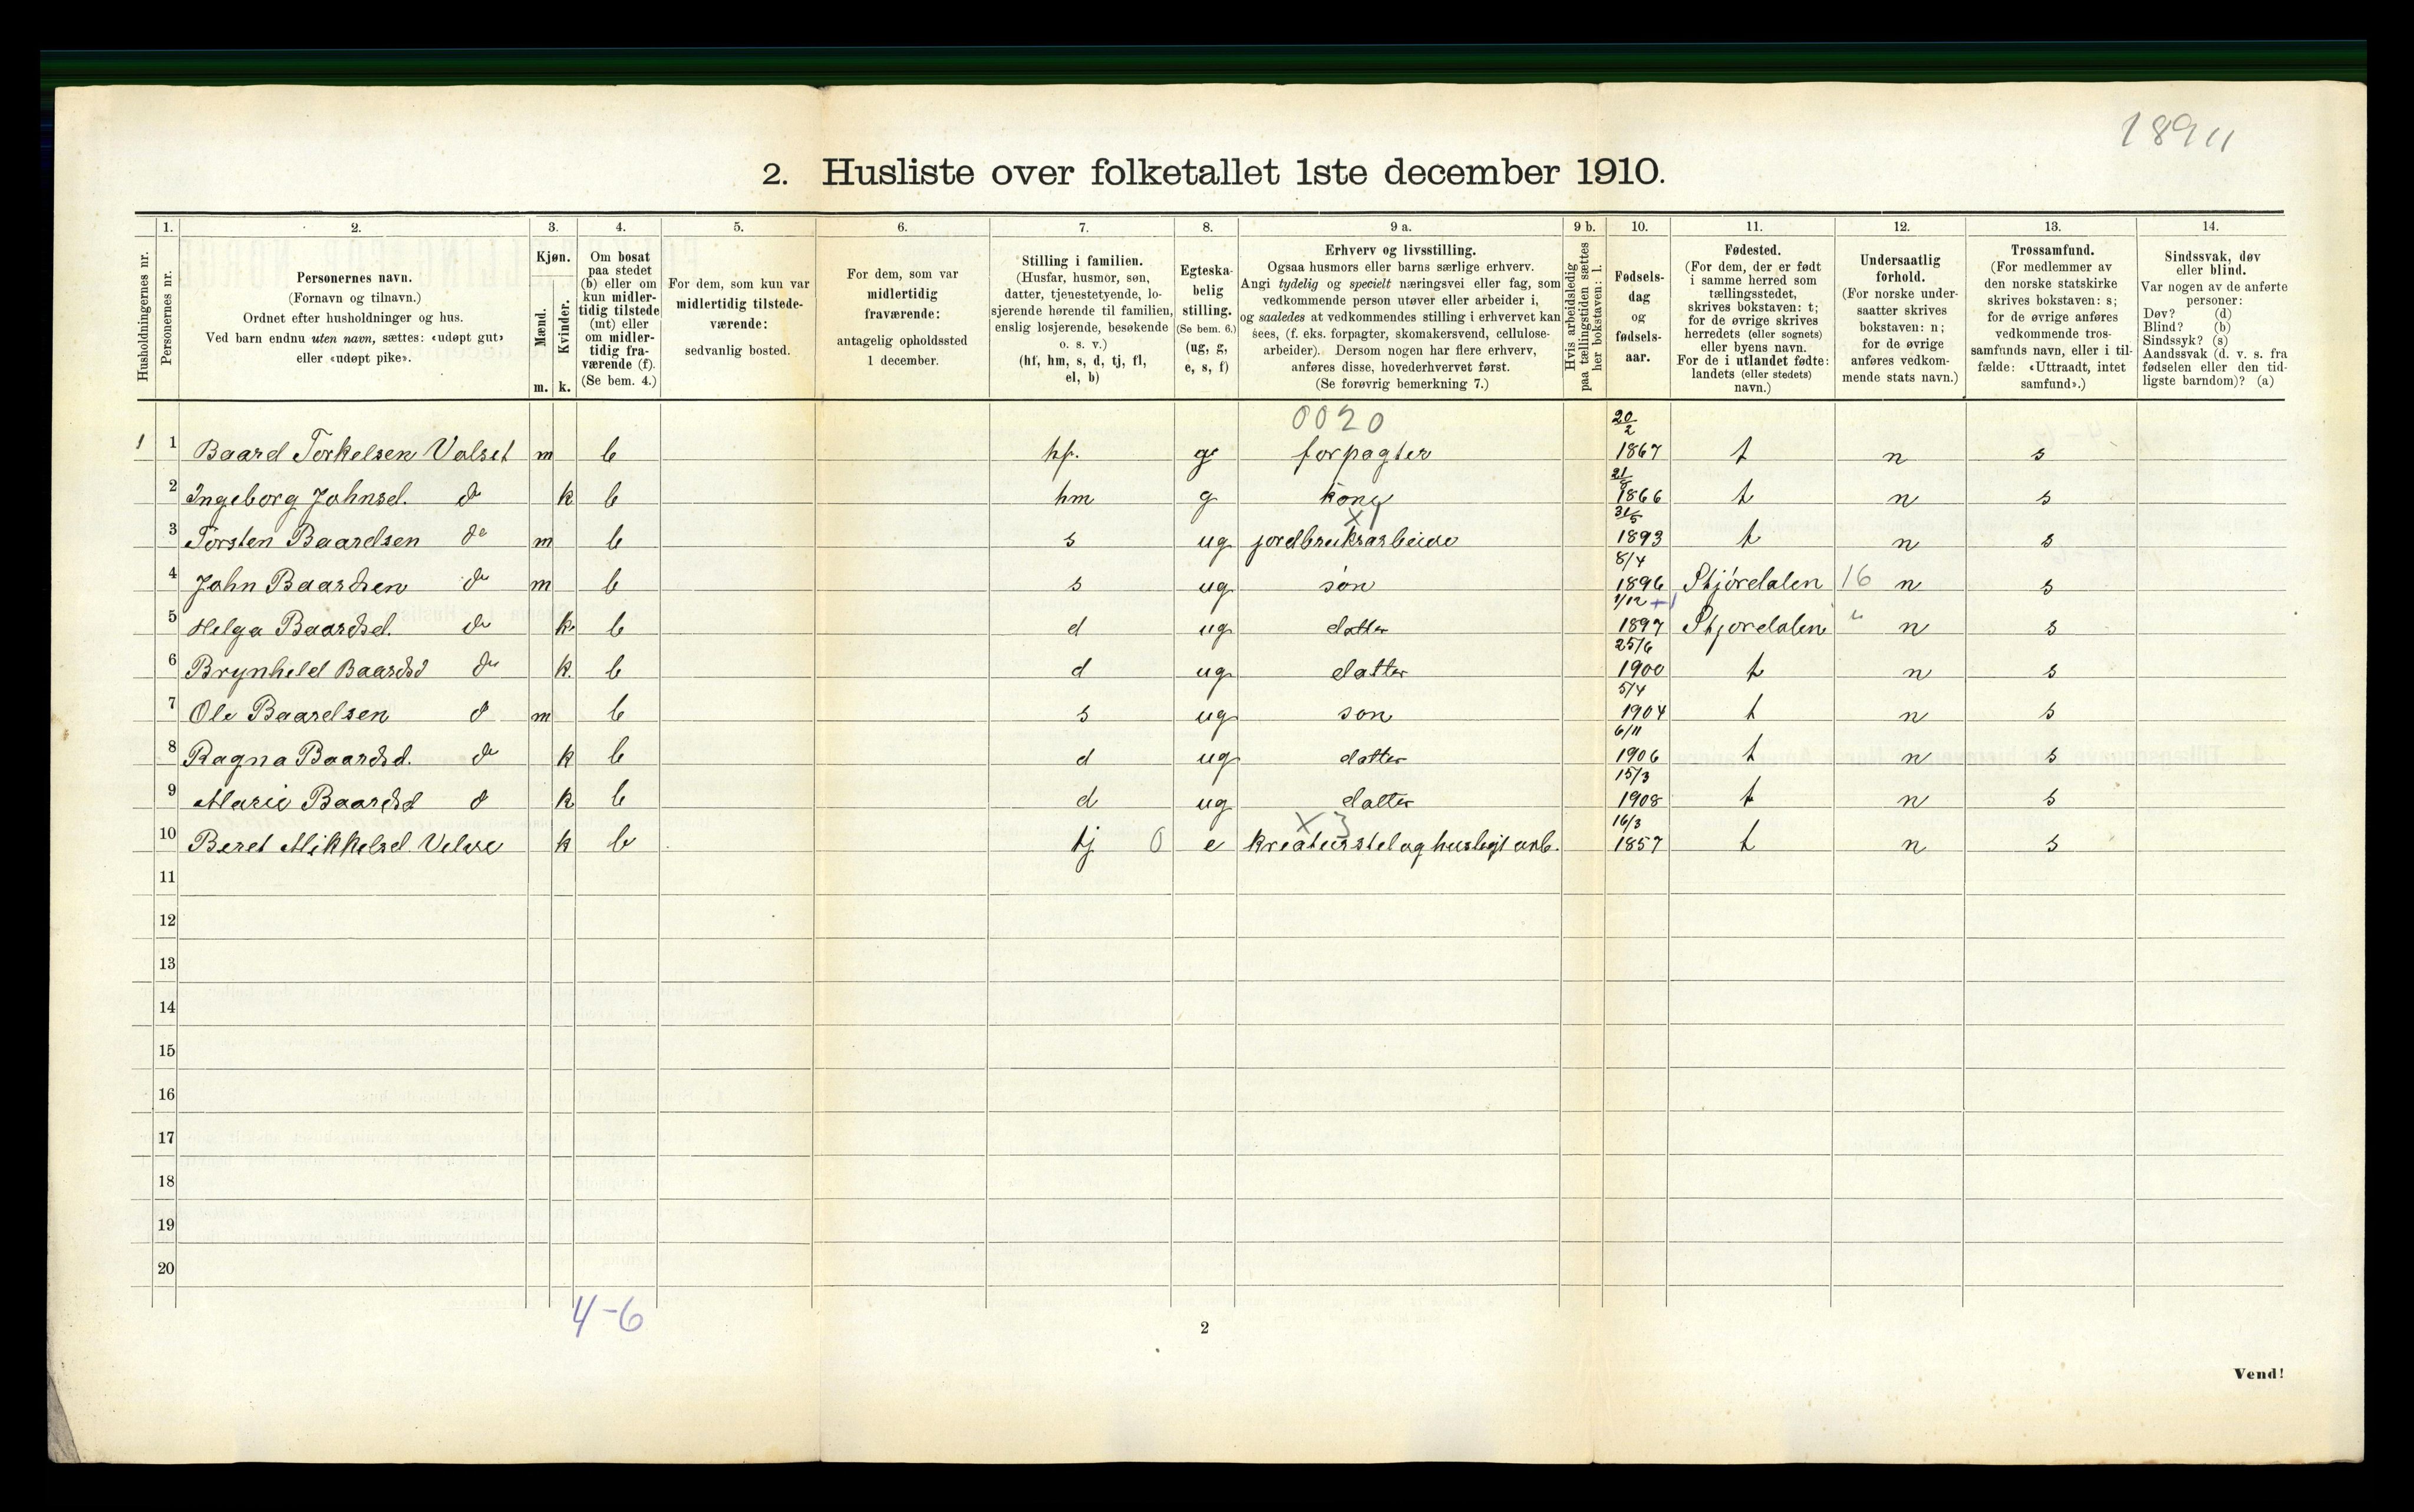 1894
2. Husliste over folketallet 1ste december 1910.
1. 2. 3. 4. 5. 6. 7. 8. 9 a. 9 b. 10. 11. 12. 13. 14.
Husholdningernes nr.
Personernes nr.
Personernes navn.
(Fornavn og tilnavn.)
Ordnet efter husholdninger og hus.
Ved barn endnu uten navn, sættes: «udøpt gut»
eller «udøpt pike».
Kjøn.
Mænd.
Kvinder.
m. k.
Om bosat
paa stedet
(b) eller om
kun midler-
tidig tilstede
(mt) eller
om midler-
tidig fra-
værende (f).
(Se bem. 4.)
For dem, som kun var
midlertidig tilstede-
værende:
sedvanlig bosted.
For dem, som var
midlertidig
fraværende:
antagelig opholdssted
1 december.
Stilling i familien.
(Husfar, husmor, søn,
datter, tjenestetyende, lo-
sjerende hørende til familien,
enslig losjerende, besøkende
o. s. v.)
(hf, hm, s, d, tj, fl,
el, b)
Egteska-
belig
stilling.
(Se bem. 6.)
(ug, g,
e, s, f)
Erhverv og livsstilling.
Ogsaa husmors eller barns særlige erhverv.
Angi tydelig og specielt næringsvei eller fag, som
vedkommende person utøver eller arbeider i,
og saaledes at vedkommendes stilling i erhvervet kan
sees, (f. eks. forpagter, skomakersvend, cellulose-
arbeider). Dersom nogen har flere erhverv,
anføres disse, hovederhvervet først.
(Se forøvrig bemerkning 7.)
Hvis arbeidsledig
paa tællingstiden sættes
her bokstaven: l.
Fødsels-
dag
og
fødsels-
aar.
Fødested.
(For dem, der er født
i samme herred som
tællingsstedet,
skrives bokstaven: t;
for de øvrige skrives
herredets (eller sognets)
eller byens navn.
For de i utlandet fødte:
landets (eller stedets)
navn.)
Undersaatlig
forhold.
(For norske under-
saatter skrives
bokstaven: n;
for de øvrige
anføres vedkom-
mende stats navn.)
Trossamfund.
(For medlemmer av
den norske statskirke
skrives bokstaven: s;
for de øvrige anføres
vedkommende tros-
samfunds navn, eller i til-
fælde: «Uttraadt, intet
samfund».)
Sindssvak, døv
eller blind.
Var nogen av de anførte
personer:
Døv? (d)
Blind? (b)
Sindssyk? (s)
Aandssvak (d. v. s. fra
fødselen eller den tid-
ligste barndom)? (a)
0020 20/2
1 1 Baard Torkelsen Valset m b hf. g forpagter 1867 t n s
2 Ingeborg Johnsd. do k b hm g kone 21/8 1866 t n s
X1
3 Torsten Baardsen do m b s ug jordbruksarbeide 31/5 1893 t n s
4 John Baardsen do m b s ug søn 8/4 1896 Stjørdalen 16 n s
5 Helga Baardsd. do k b d ug datter 1/12 1897 Stjørdalen " n s
6 Brynheld Baardsd do k. b d ug datter 25/6 1900 t n s
7 Ole Baardsen d m b s ug søn 5/4 1904 t n s
8 Ragna Baardsd. do k b d ug datter 6/11 1906 t n s
9 Marie Baardsd d k b d ug datter 15/3 1908 t n s
X3
10 Beret Mikkelsd. k b tj 0 e kreaturstel og husligt arb. 16/3 1857 t n s
11
12
13
14
15
16
17
18
19
20
4-6
2
Vend!